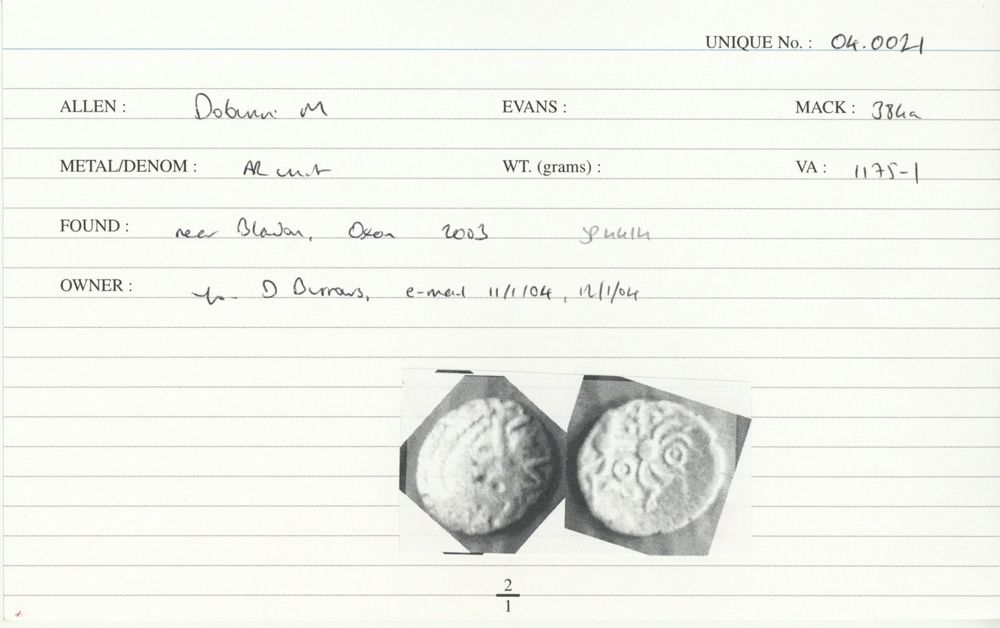 UNIQUE No. : 04.0021
ALLEN : Dobunni M EVANS : MACK : 384a
METAL/DENOM : AR unit WT. (grams) : VA : 1175-1
FOUND : near Bladon, Oxon 2003 SP4414
OWNER : D Burrows, e-mail 11/1/04, 12/1/04
2
1